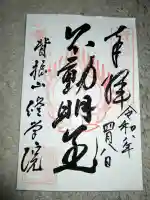 奉拝
令和八年
四月八日
不動明王
背振山修学院